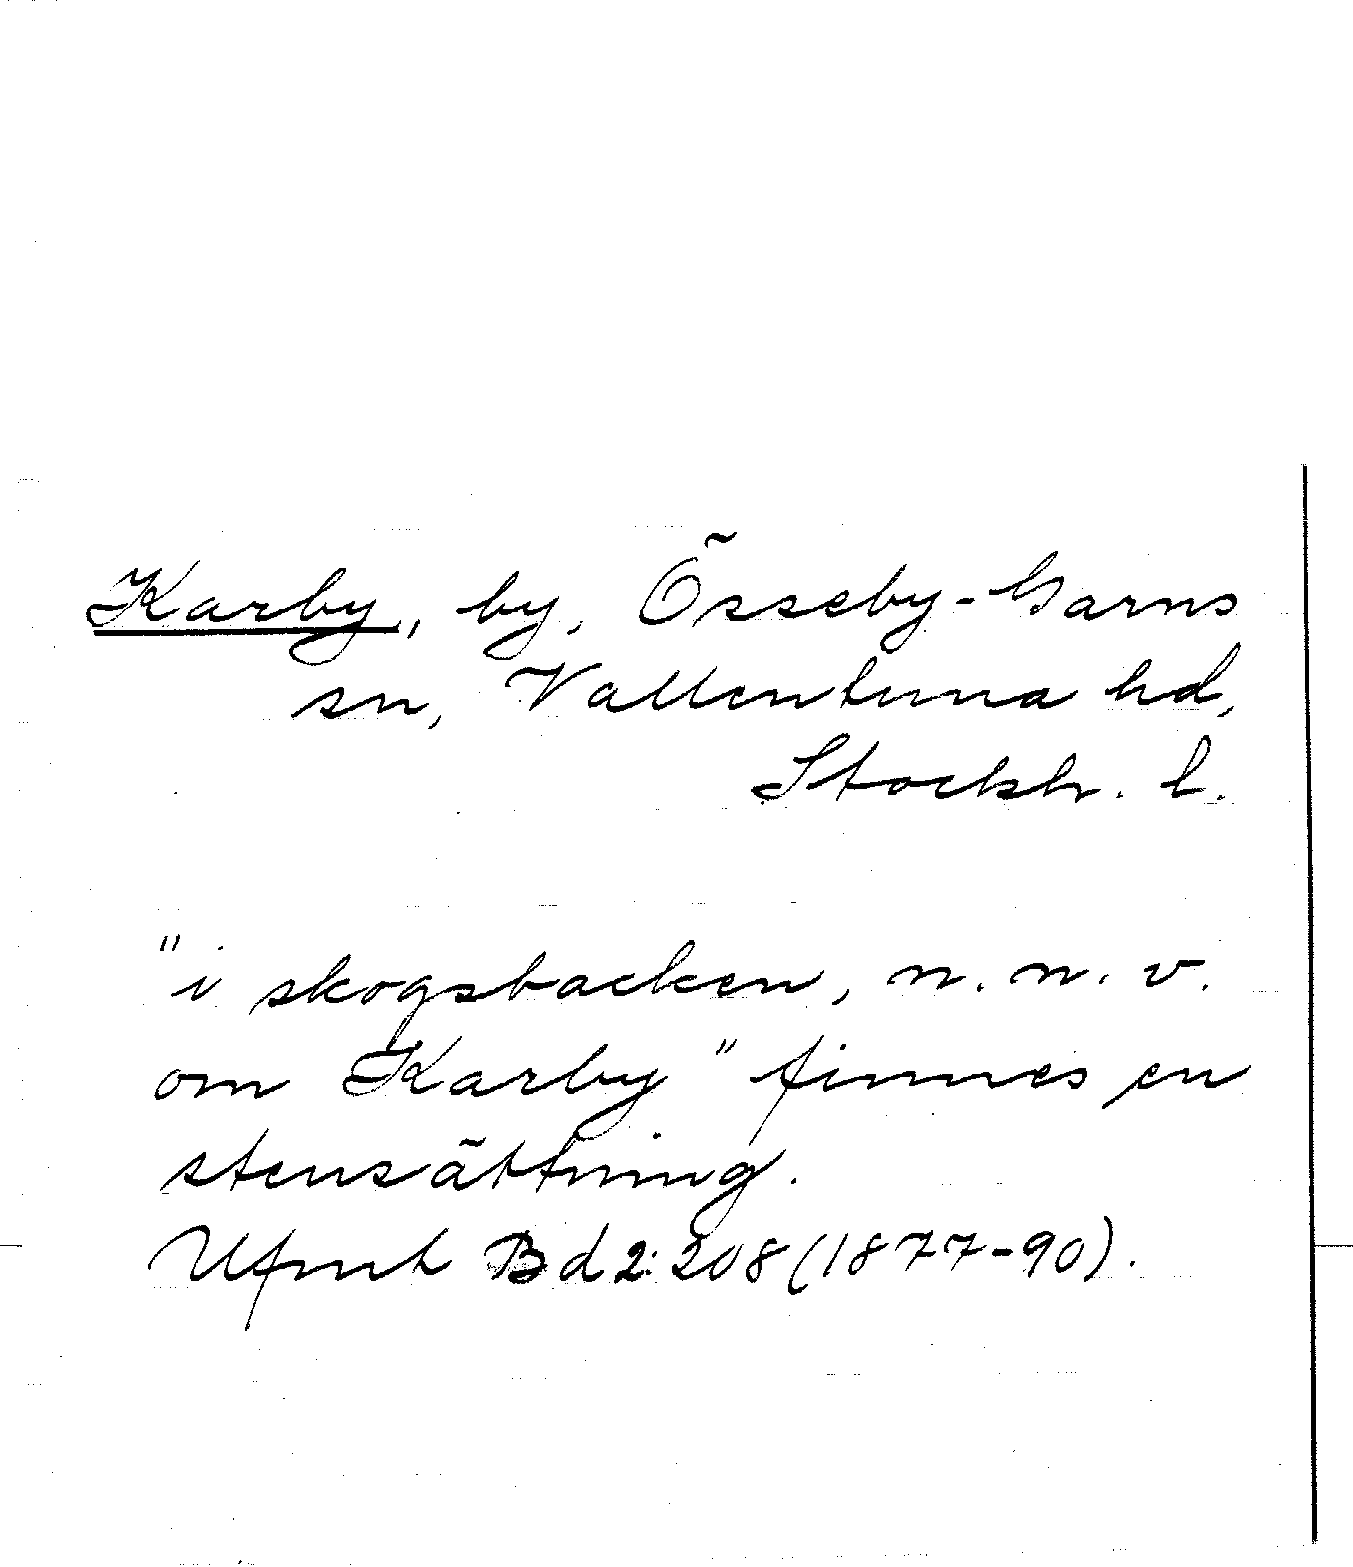 Karby, by, Össeby-Garns
sn, Vallentuna hd,
Stockh. l.
"i skogsbacken, n.n.v.
om Karby" finnes en
stensättning.
Ufmt Bd 2:208 (1877-90).